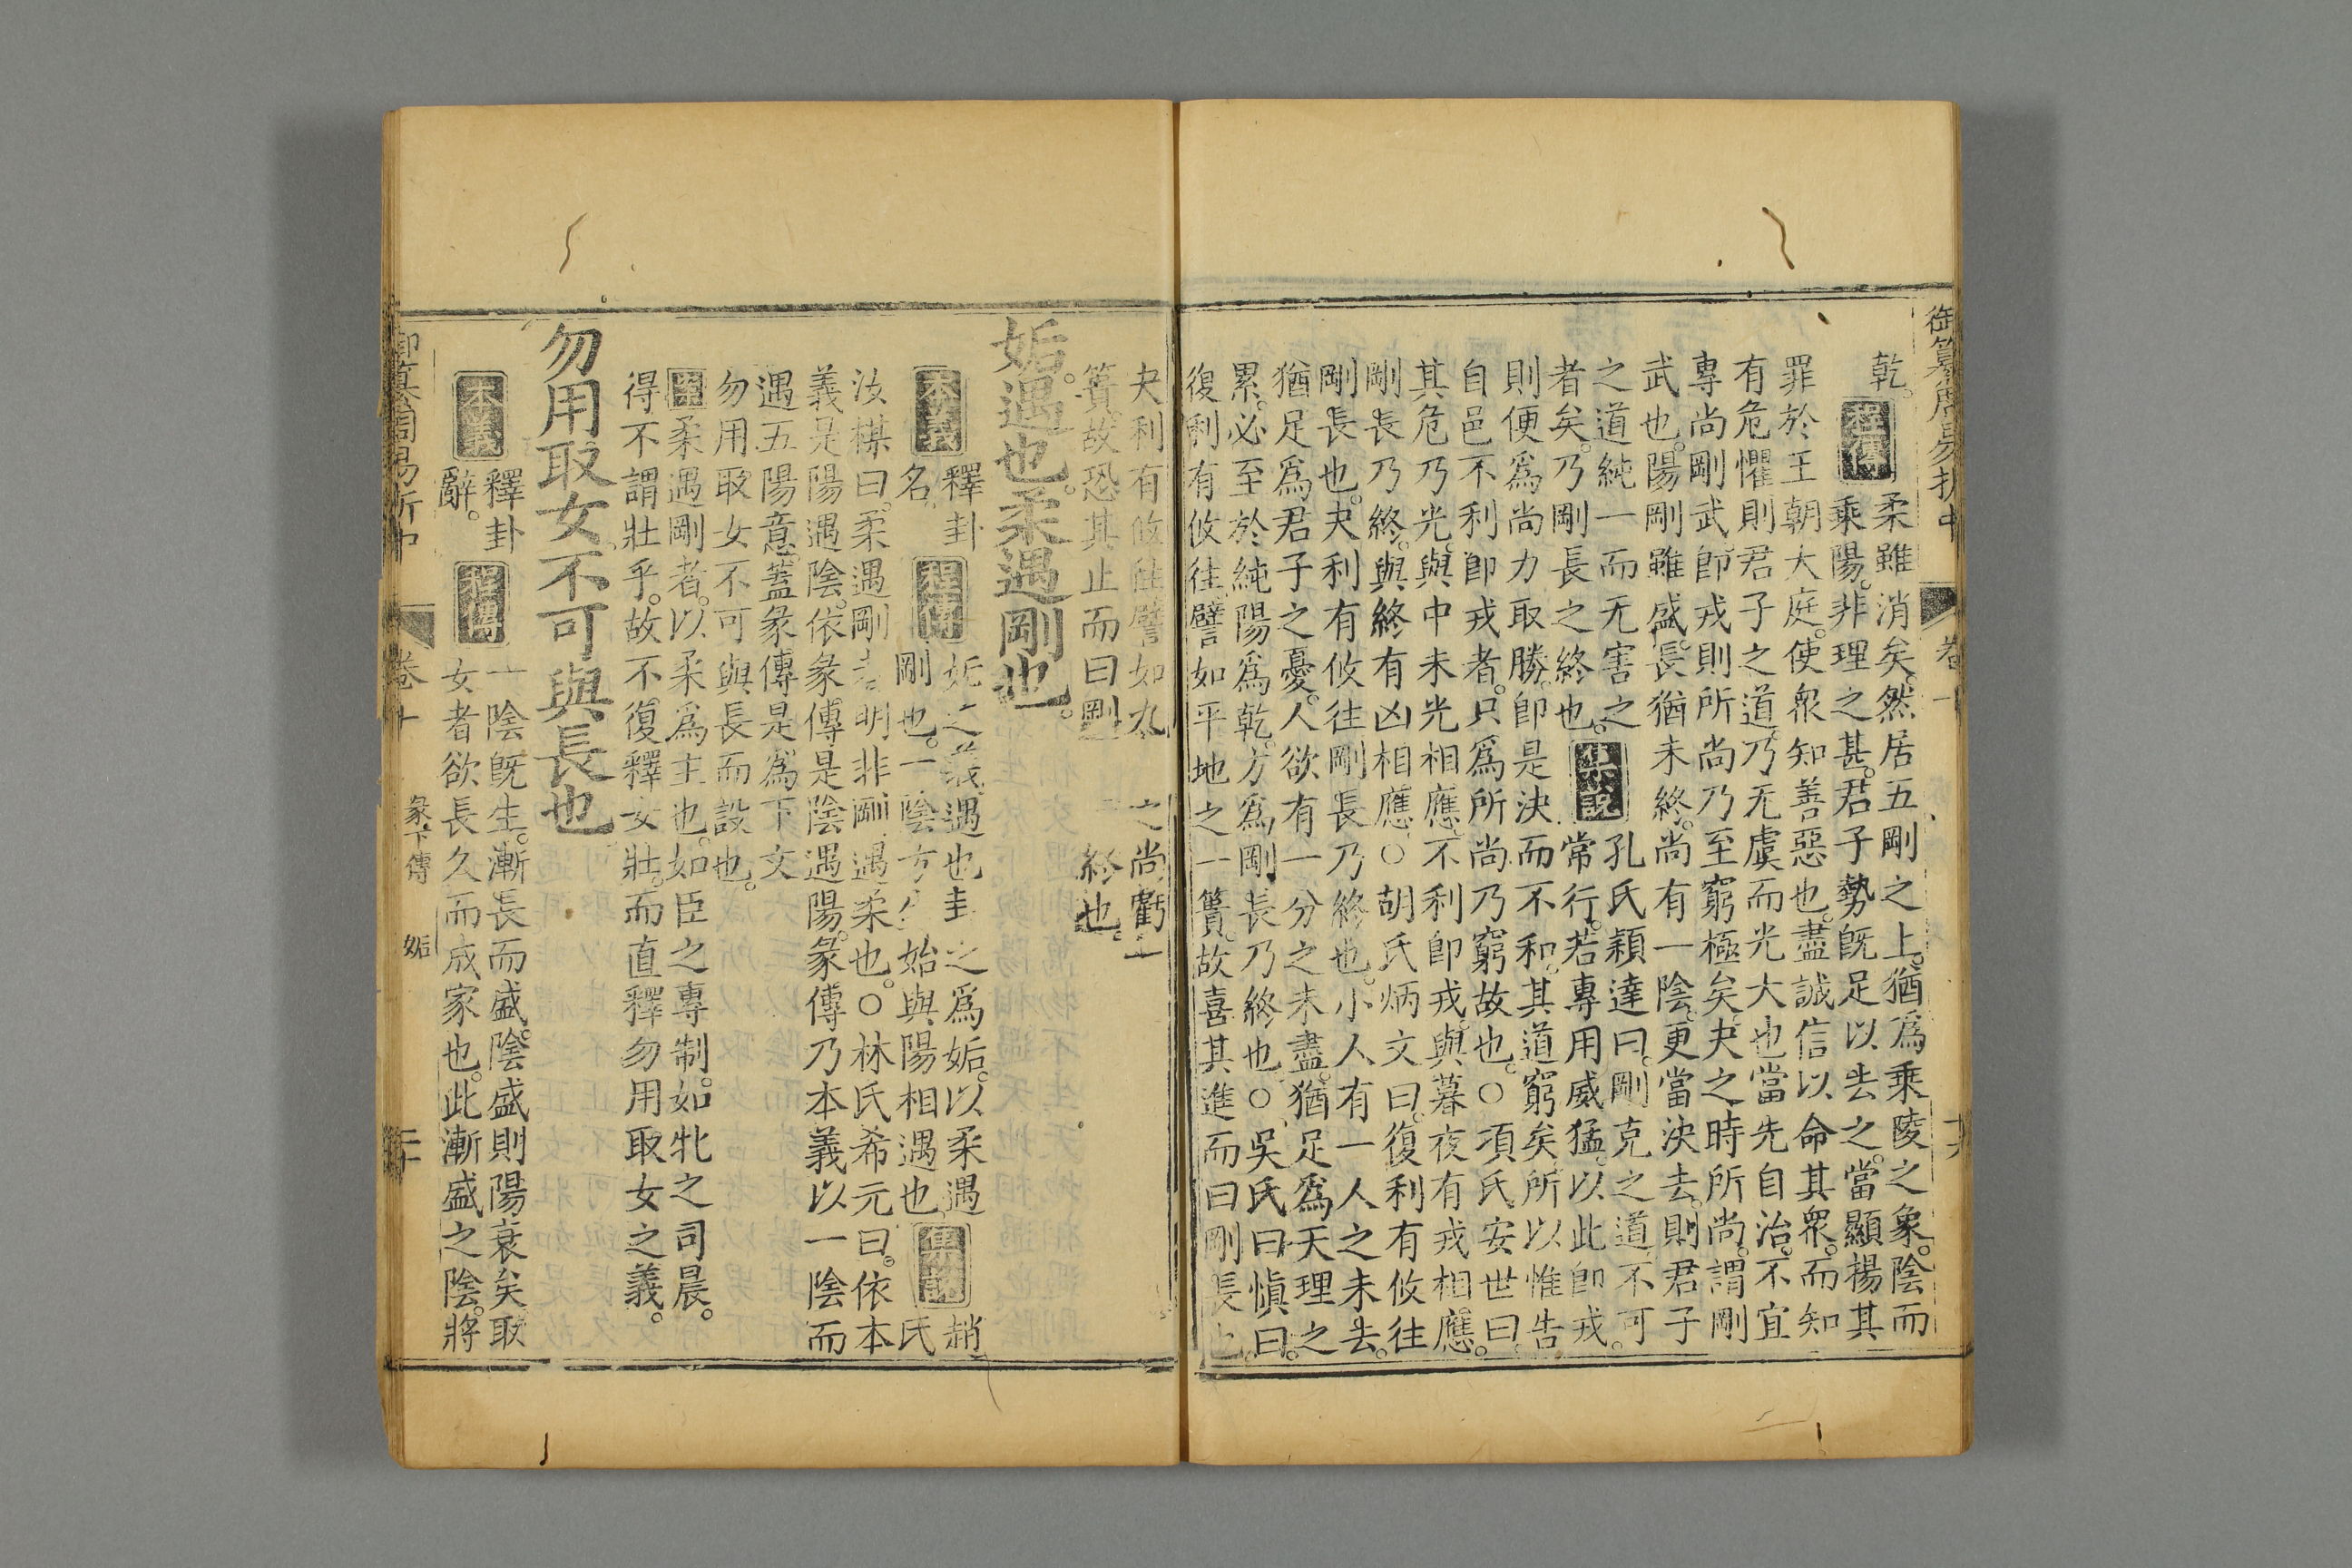 御纂周易折中　卷十　十六
乾。柔雖消矣。然居五剛之上。猶爲乘陵之象。陰而
程傳　乘陽。非理之甚。君子勢既足以去之。當顯揚其
罪於王朝大庭。使衆知善惡也。盡誠信以命其衆。而知
有危懼則君子之道。乃无虞而光大也當先自治。不宜
專尚剛武。即戎則所尚乃至窮極矣。夬之時所尚。謂剛
武也。陽剛雖盛。長猶未終。尚有一陰。更當決去。則君子
之道純一而无害之　孔氏穎達曰。剛克之道不可
者矣。乃剛長之終也。集說　常行。若專用威猛。以此即戎。
則便爲尚力取勝。即是決而不和。其道窮矣。所以惟告
自邑不利即戎者。只爲所尚乃窮故也。○項氏安世曰。
其危乃光。與中未光相應。不利即戎。與暮夜有戎相應。
剛長乃終。與終有凶相應。○胡氏炳文曰。復利有攸往
剛長也。夬利有攸往剛長乃終也。小人有一人之未去。
猶足爲君子之憂。人欲有一分之未盡。猶足爲天理之
累。必至於純陽爲乾。方爲剛長乃終也。○吳氏曰慎曰。
復利有攸往譬如平地之一簣。故喜其進而曰剛長也。
夬利有攸往譬如九　之尚虧一
簣。故恐其止而曰剛　終也。
姤。遇也。柔遇剛也。
釋卦　姤之義遇也卦之爲姤。以柔遇　趙
本義　名。程傳　剛也。一陰方生始與陽相遇也。集說　氏
汝楳曰。柔遇剛者明非剛遇柔也。○林氏希元曰。依本
義是陽遇陰。依彖傳是陰遇陽。彖傳乃本義以一陰而
遇五陽意。蓋彖傳是爲下文
勿用取女不可與長而設也。
案　柔遇剛者。以柔爲主也。如臣之專制。如牝之司晨。
得不謂壯乎。故不復釋女壯。而直釋勿用取女之義。
勿用取女。不可與長也
釋卦　一陰既生。漸長而盛。陰盛則陽衰矣取
本義　辭。程傳　女者欲長久而成家也。此漸盛之陰。將
御纂周易折中　卷十　彖下傳　姤　二十